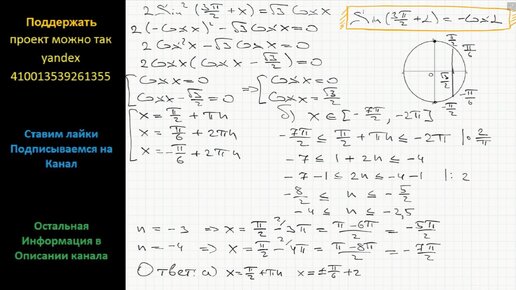 Поддержать
проект можно так
yandex
410013539261355
Ставим лайки
Подписываемся на
Канал
Остальная
Информация в
Описании канала
2Sin²(3π/2 + x) = √3 Cosx
Sin(3π/2 + α) = -Cosα
2(-Cosx)² - √3 Cosx = 0
2Cos²x - √3 Cosx = 0
2Cosx(Cosx - √3/2) = 0
[Cosx = 0 => [Cosx = 0
[Cosx - √3/2 = 0 [Cosx = √3/2
π/2
π/6
0
-π/6
-π/2
[x = π/2 + πn
x = π/6 + 2πn
x = -π/6 + 2πn
б) x ∈ [-7π/2, -2π]
-7π/2 ≤ π/2 + πn ≤ -2π | · 2/π
-7 ≤ 1 + 2n ≤ -4
-7-1 ≤ 2n ≤ -4-1 | : 2
-8/2 ≤ n ≤ -5/2
-4 ≤ n ≤ -2,5
n = -3 => x = π/2 - 3π = (π-6π)/2 = -5π/2
n = -4 => x = π/2 - 4π = (π-8π)/2 = -7π/2
Ответ: а) x = π/2 + πn x = ±π/6 + 2